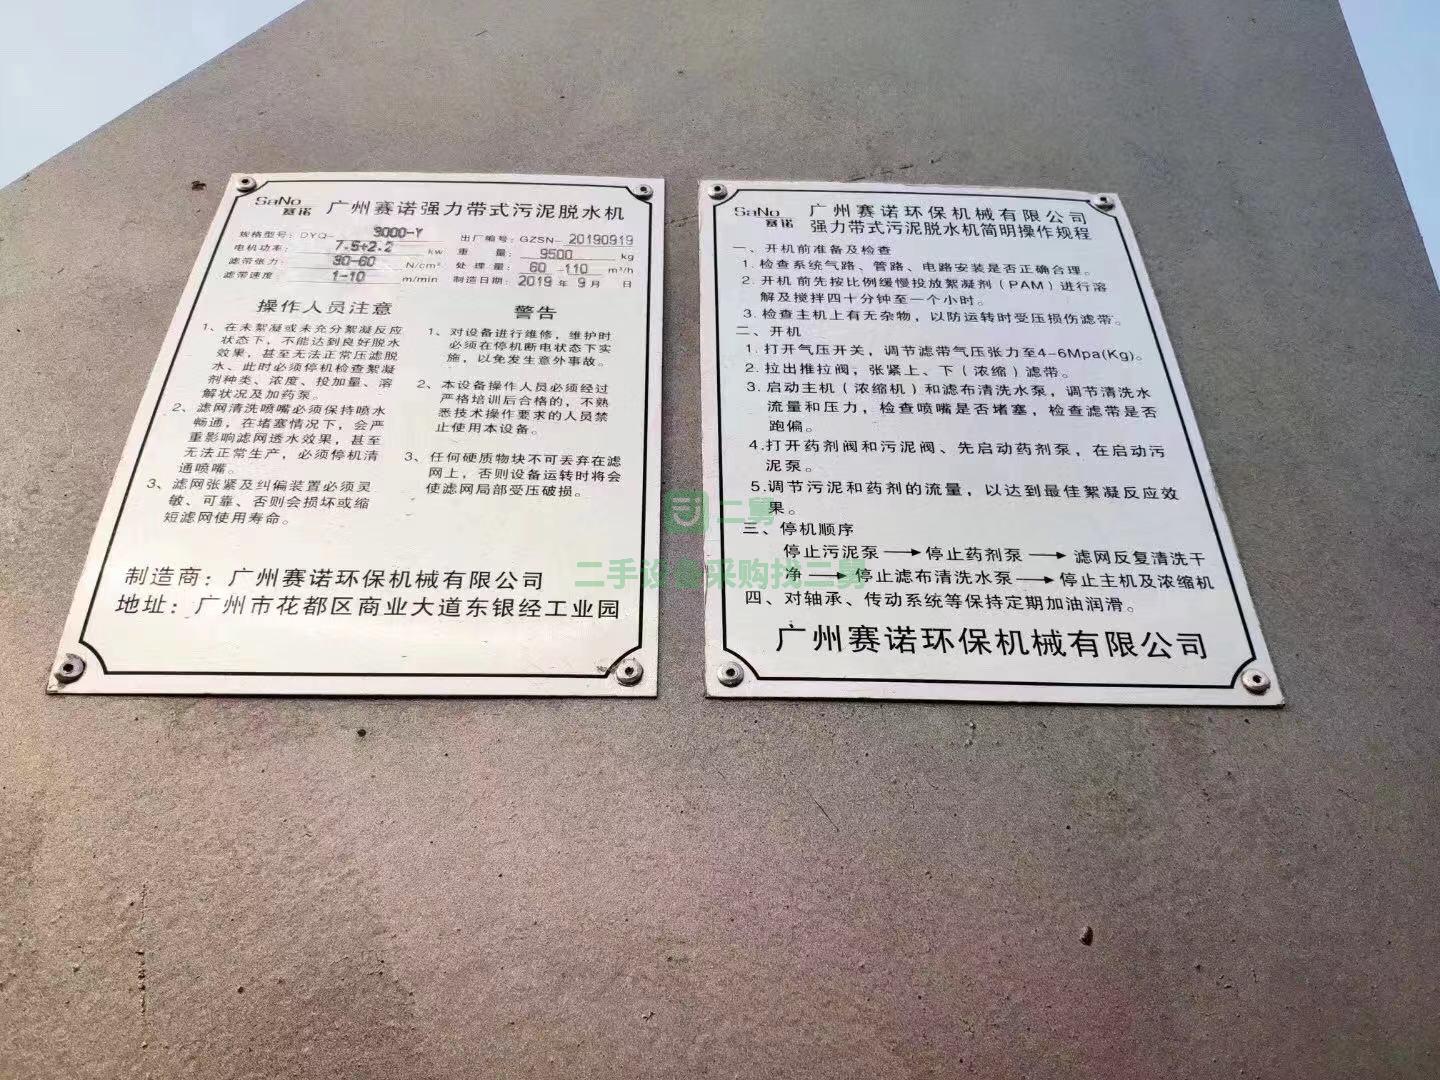 SaNo
赛诺
广州赛诺强力带式污泥脱水机
规格型号：DYQ- 3000-Y 出厂编号：GZSN- 20190919
电机功率： 7.5+2.2 kw 重 量： 9500 kg
滤带张力： 30-60 N/cm² 处 理 量： 60 -110 m³/h
滤带速度： 1-10 m/min 制造日期： 2019 年 9 月 日
操作人员注意
1、在未絮凝或未充分絮凝反应
状态下，不能达到良好脱水
效果，甚至无法正常压滤脱
水、此时必须停机检查絮凝
剂种类、浓度、投加量、溶
解状况及加药泵。
2、滤网清洗喷嘴必须保持喷水
畅通，在堵塞情况下，会严
重影响滤网透水效果，甚至
无法正常生产，必须停机清
通喷嘴。
3、滤网张紧及纠偏装置必须灵
敏、可靠、否则会损坏或缩
短滤网使用寿命。
警告
1、对设备进行维修，维护时
必须在停机断电状态下实
施，以免发生意外事故。
2、本设备操作人员必须经过
严格培训后合格的，不熟
悉技术操作要求的人员禁
止使用本设备。
3、任何硬质物块不可丢弃在滤
网上，否则设备运转时将会
使滤网局部受压破损。
制造商：广州赛诺环保机械有限公司
地址：广州市花都区商业大道东银经工业园
SaNo
赛诺
广州赛诺环保机械有限公司
强力带式污泥脱水机简明操作规程
一、开机前准备及检查
1.检查系统气路、管路、电路安装是否正确合理。
2.开机前先按比例缓慢投放絮凝剂（PAM）进行溶
解及搅拌四十分钟至一个小时。
3.检查主机上有无杂物，以防运转时受压损伤滤带。
二、开机
1.打开气压开关，调节滤带气压张力至4-6Mpa(Kg)。
2.拉出推拉阀，张紧上、下（浓缩）滤带。
3.启动主机（浓缩机）和滤布清洗水泵，调节清洗水
流量和压力，检查喷嘴是否堵塞，检查滤带是否
跑偏。
4.打开药剂阀和污泥阀、先启动药剂泵，在启动污
泥泵。
5.调节污泥和药剂的流量，以达到最佳絮凝反应效
果。
三、停机顺序
停止污泥泵→停止药剂泵→滤网反复清洗干
净→停止滤布清洗水泵→停止主机及浓缩机
四、对轴承、传动系统等保持定期加油润滑。
广州赛诺环保机械有限公司
二舅
二手设备采购找二舅